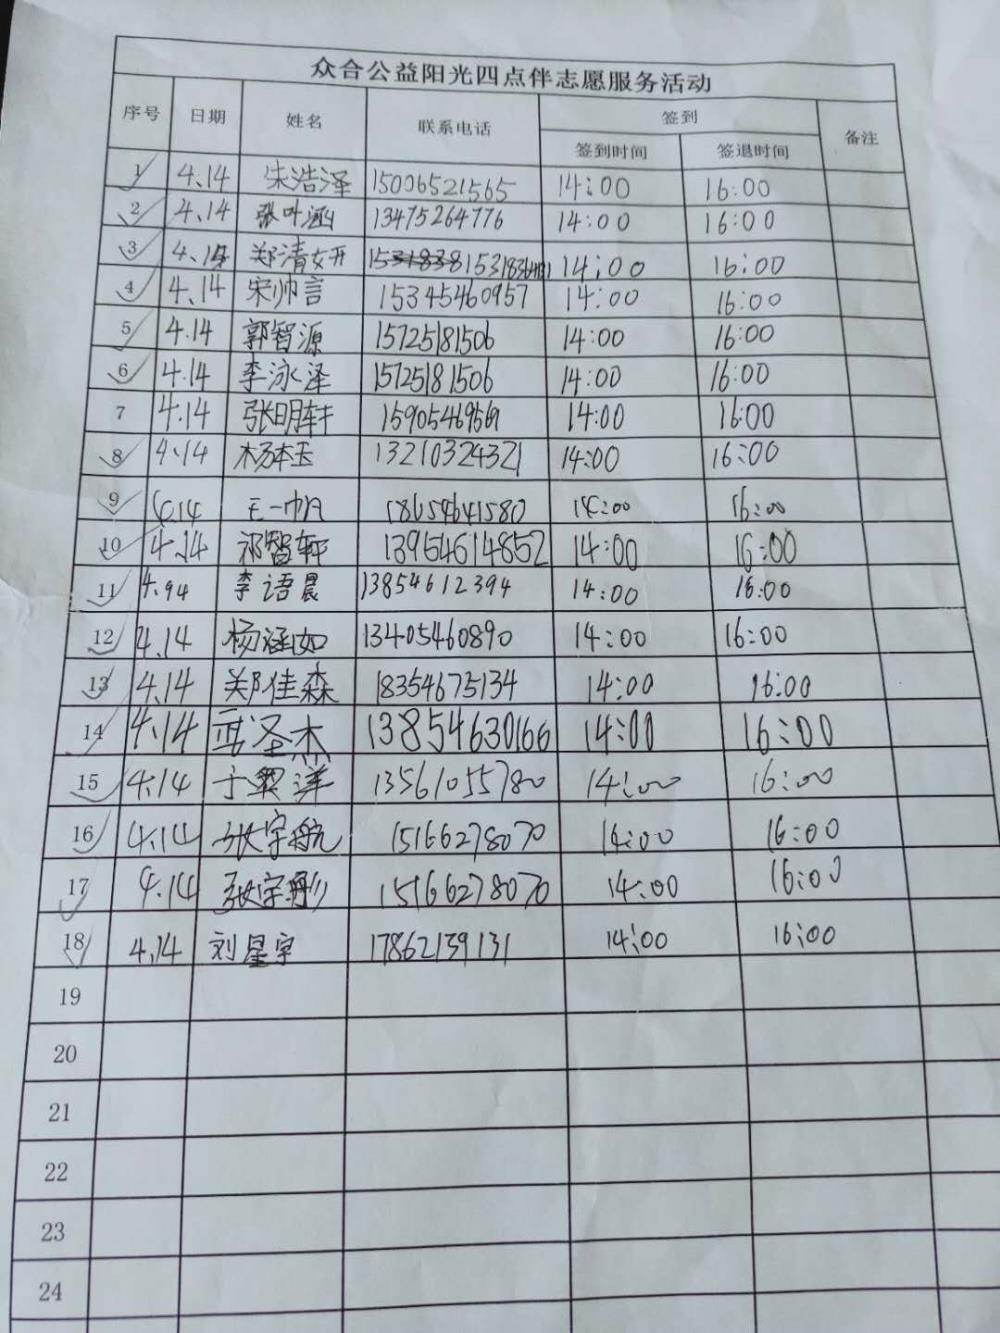 众合公益阳光四点伴志愿服务活动
序号 日期 姓名 联系电话 签到 备注
签到时间 签退时间
1 4.14 朱浩泽 15006521565 14:00 16:00
2 4.14 张叶涵 13475264776 14:00 16:00
3 4.14 郑清妍 14:00 16:00
4 4.14 宋帅言 15345460957 14:00 16:00
5 4.14 郭智源 15725181506 14:00 16:00
6 4.14 李泳泽 15725181506 14:00 16:00
7 4.14 张明轩 14:00 16:00
8 4.14 杨本玉 13210324321 14:00 16:00
9 4.14 王一帆 18654641580 14:00 16:00
10 4.14 祁智轩 13954614852 14:00 16:00
11 4.94 李语晨 13854612394 14:00 16:00
12 4.14 杨涵如 13405460890 14:00 16:00
13 4.14 郑佳森 18354675134 14:00 16:00
14 4.14 圣杰 13854630166 14:00 16:00
15 4.14 于奥洋 13561055780 14:00 16:00
16 4.14 张宇航 15166278070 14:00 16:00
17 4.14 张宇 15166278070 14:00 16:00
18 4.14 刘星宇 17862139131 14:00 16:00
19
20
21
22
23
24